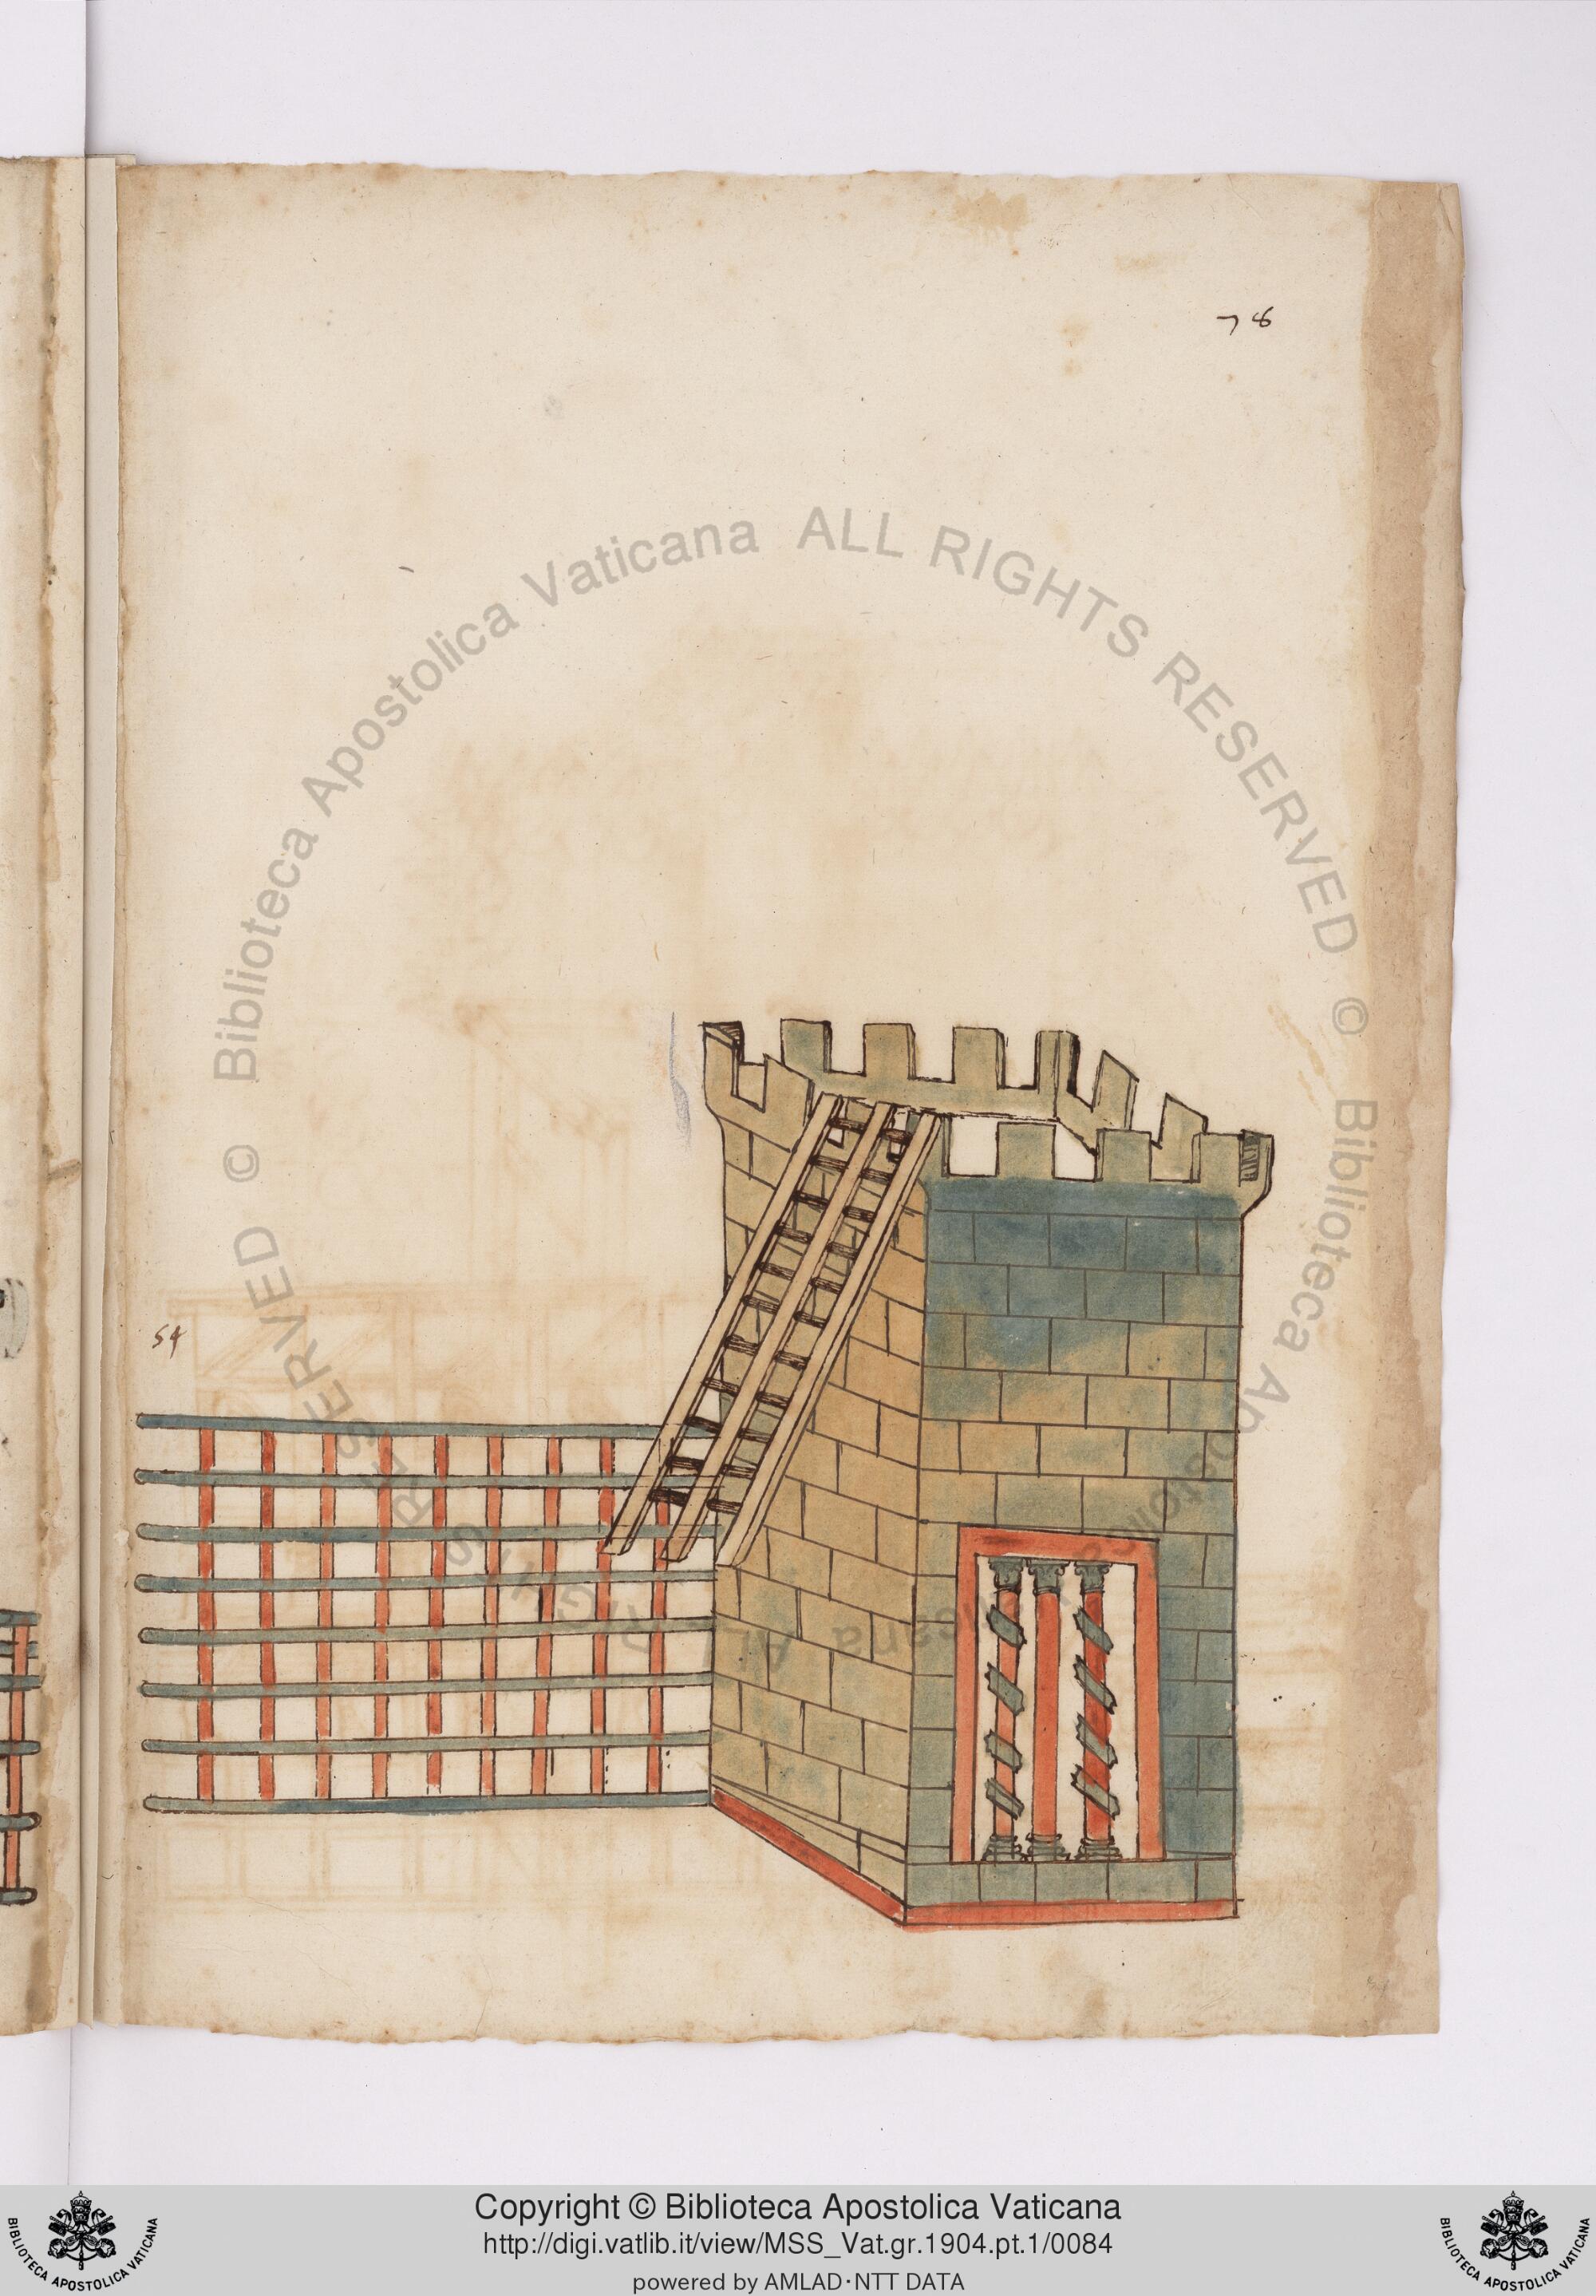 78
© Biblioteca Apostolica Vaticana ALL RIGHTS RESERVED © Biblioteca Apostolica Vaticana ALL RIGHTS RESERVED
54
Copyright © Biblioteca Apostolica Vaticana
http://digi.vatlib.it/view/MSS_Vat.gr.1904.pt.1/0084
powered by AMLAD·NTT DATA
BIBLIOTECA APOSTOLICA VATICANA
BIBLIOTECA APOSTOLICA VATICANA